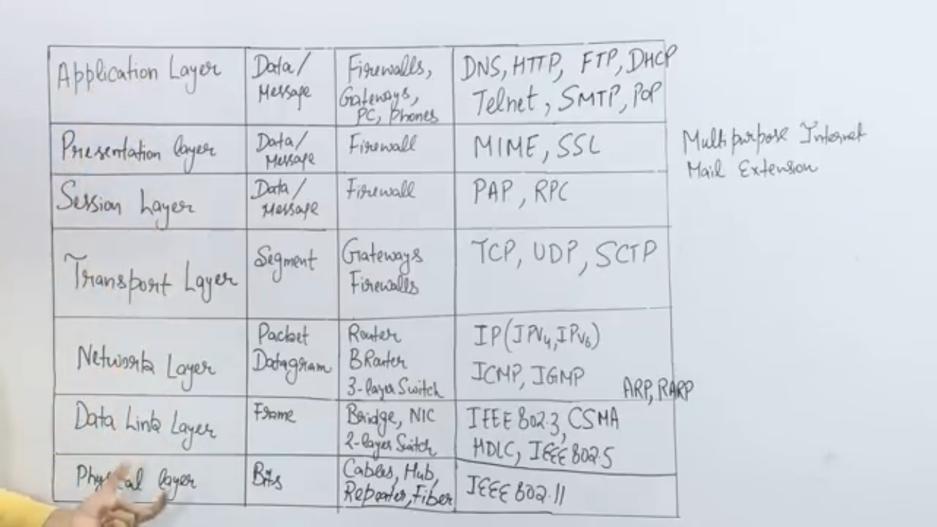 Application Layer
Data/
Message
Firewalls,
Gateways,
PC, Phones
DNS, HTTP, FTP, DHCP
Telnet, SMTP, POP
Presentation layer
Data/
Message
Firewall
MIME, SSL
Multipurpose Internet
Mail Extension
Session Layer
Data/
Message
Firewall
PAP, RPC
Transport Layer
Segment
Gateways
Firewalls
TCP, UDP, SCTP
Network Layer
Packet
Datagram
Router
BRouter
3-layer Switch
IP(IPV4, IPV6)
ICMP, IGMP
ARP, RARP
Data Link Layer
Frame
Bridge, NIC
2-layer Switch
IEEE 802.3, CSMA
HDLC, IEEE 802.5
Physical layer
Bits
Cables, Hub,
Repeater, Fiber
IEEE 802.11